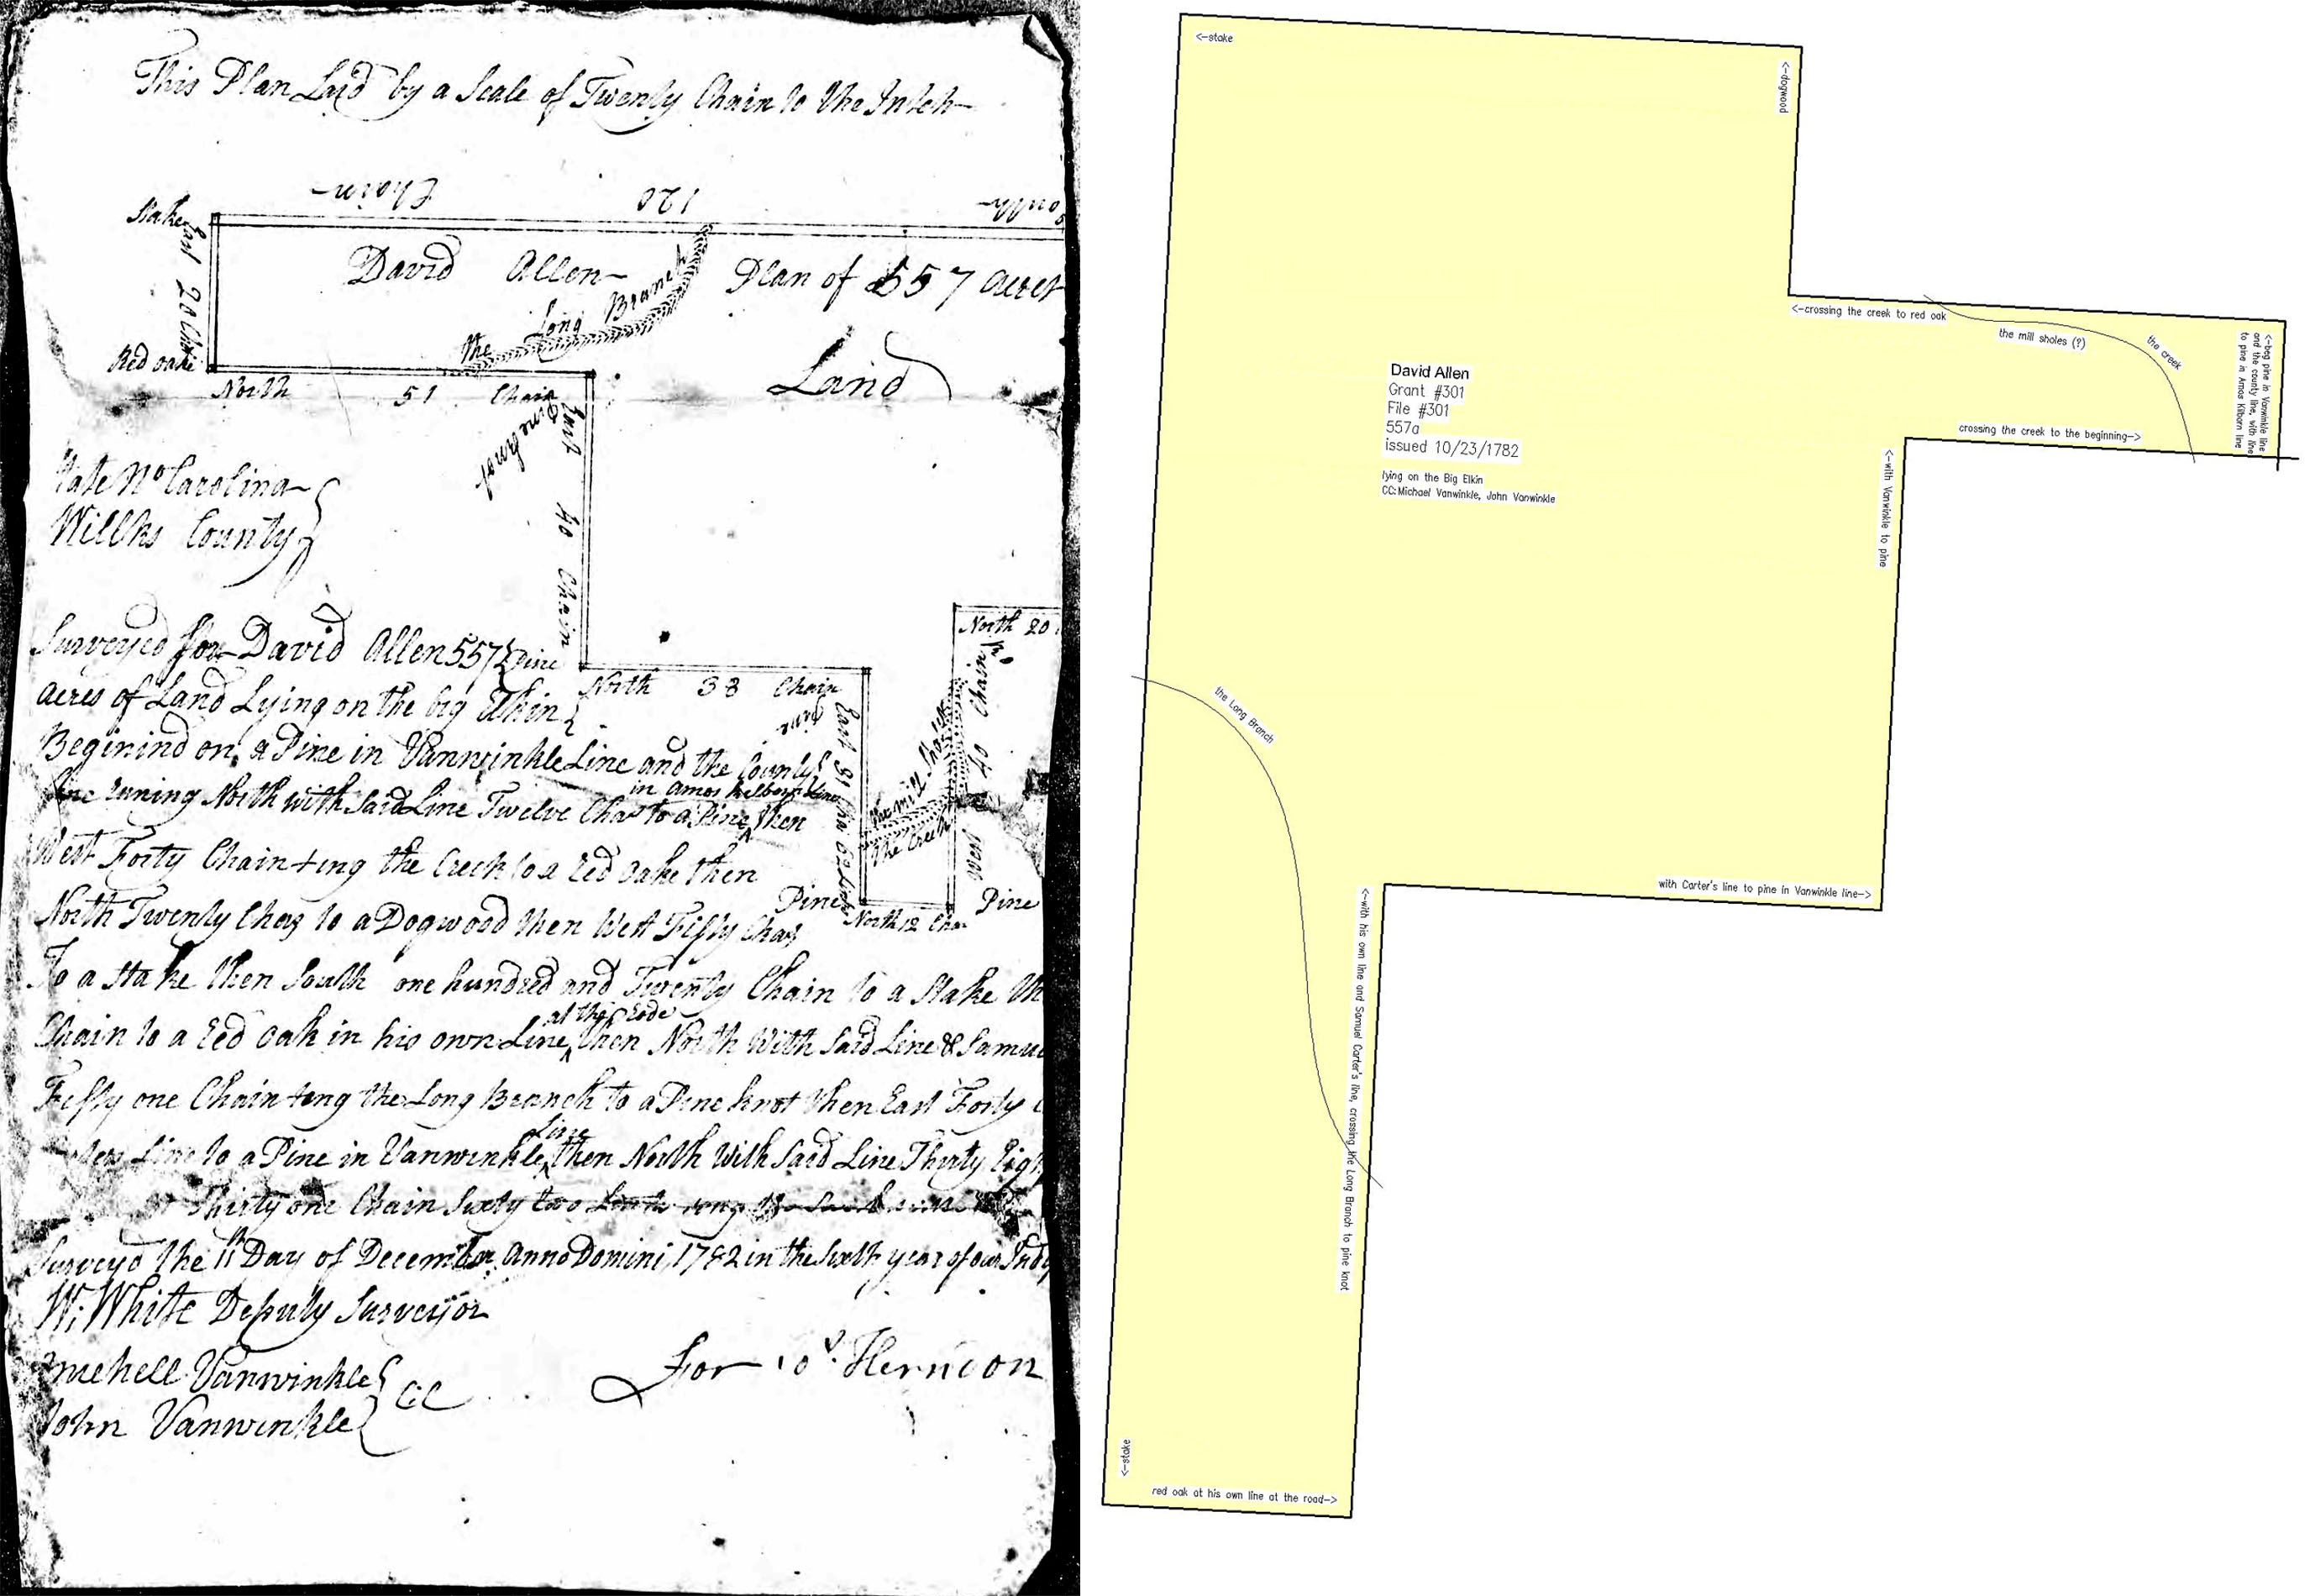 This Plan Laid by a Scale of Twenty Chain to the Intch
Chain
120
Stake
East 20 Cha
David Allen
the Long Branch
Plan of 557 acres
Land
Red oake
North 51 Chain
Pine knot
East 40 Chain
State No Carolina
Willks County
North 20
Surveyed for David Allen 557
acres of Land Lying on the big Elkin
Pine
North 38 Chain
Pine
East 31 Cha 62 Links
the mill Sholes
The Creek
West 40 Chain
Beginind on a Pine in Vanwinkle Line and the County
Line runing North with Said Line Twelve Chas to a Pine in Amos Kilborn Line then
West Forty Chain +ing the Creek to a Red Oake then
Pine
North 12 Cha
Pine
North Twenty Chas to a Dogwood then West Fifty Chas
To a Stake then South one hundred and Twenty Chain to a Stake
Chain to a Red Oak in his own Line at the Rode then North With Said Line &
Fifty one Chain +ing the Long Branch to a Pine knot then East Forty
Line to a Pine in Vanwinkle Line then North With Said Line Thirty
Thirty one Chain Sixty two
Surveyd the 11th Day of December Anno Domini 1782 in the Sixth year of our
W. White Deputy Surveyor
Michell Vanwinkle
John Vanwinkle
CC
For Herndon
<-stake
<-dogwood
<-crossing the creek to red oak
the mill sholes (?)
the creek
<-beg pine in Vanwinkle line
and the county line, with line
to pine in Amos Kilborn line
David Allen
Grant #301
File #301
557a
issued 10/23/1782
lying on the Big Elkin
CC: Michael Vanwinkle, John Vanwinkle
crossing the creek to the beginning->
<-with Vanwinkle to pine
the Long Branch
with Carter's line to pine in Vanwinkle line->
<-with his own line and Samuel Carter's line, crossing the Long Branch to pine knot
<-stake
red oak at his own line at the road->